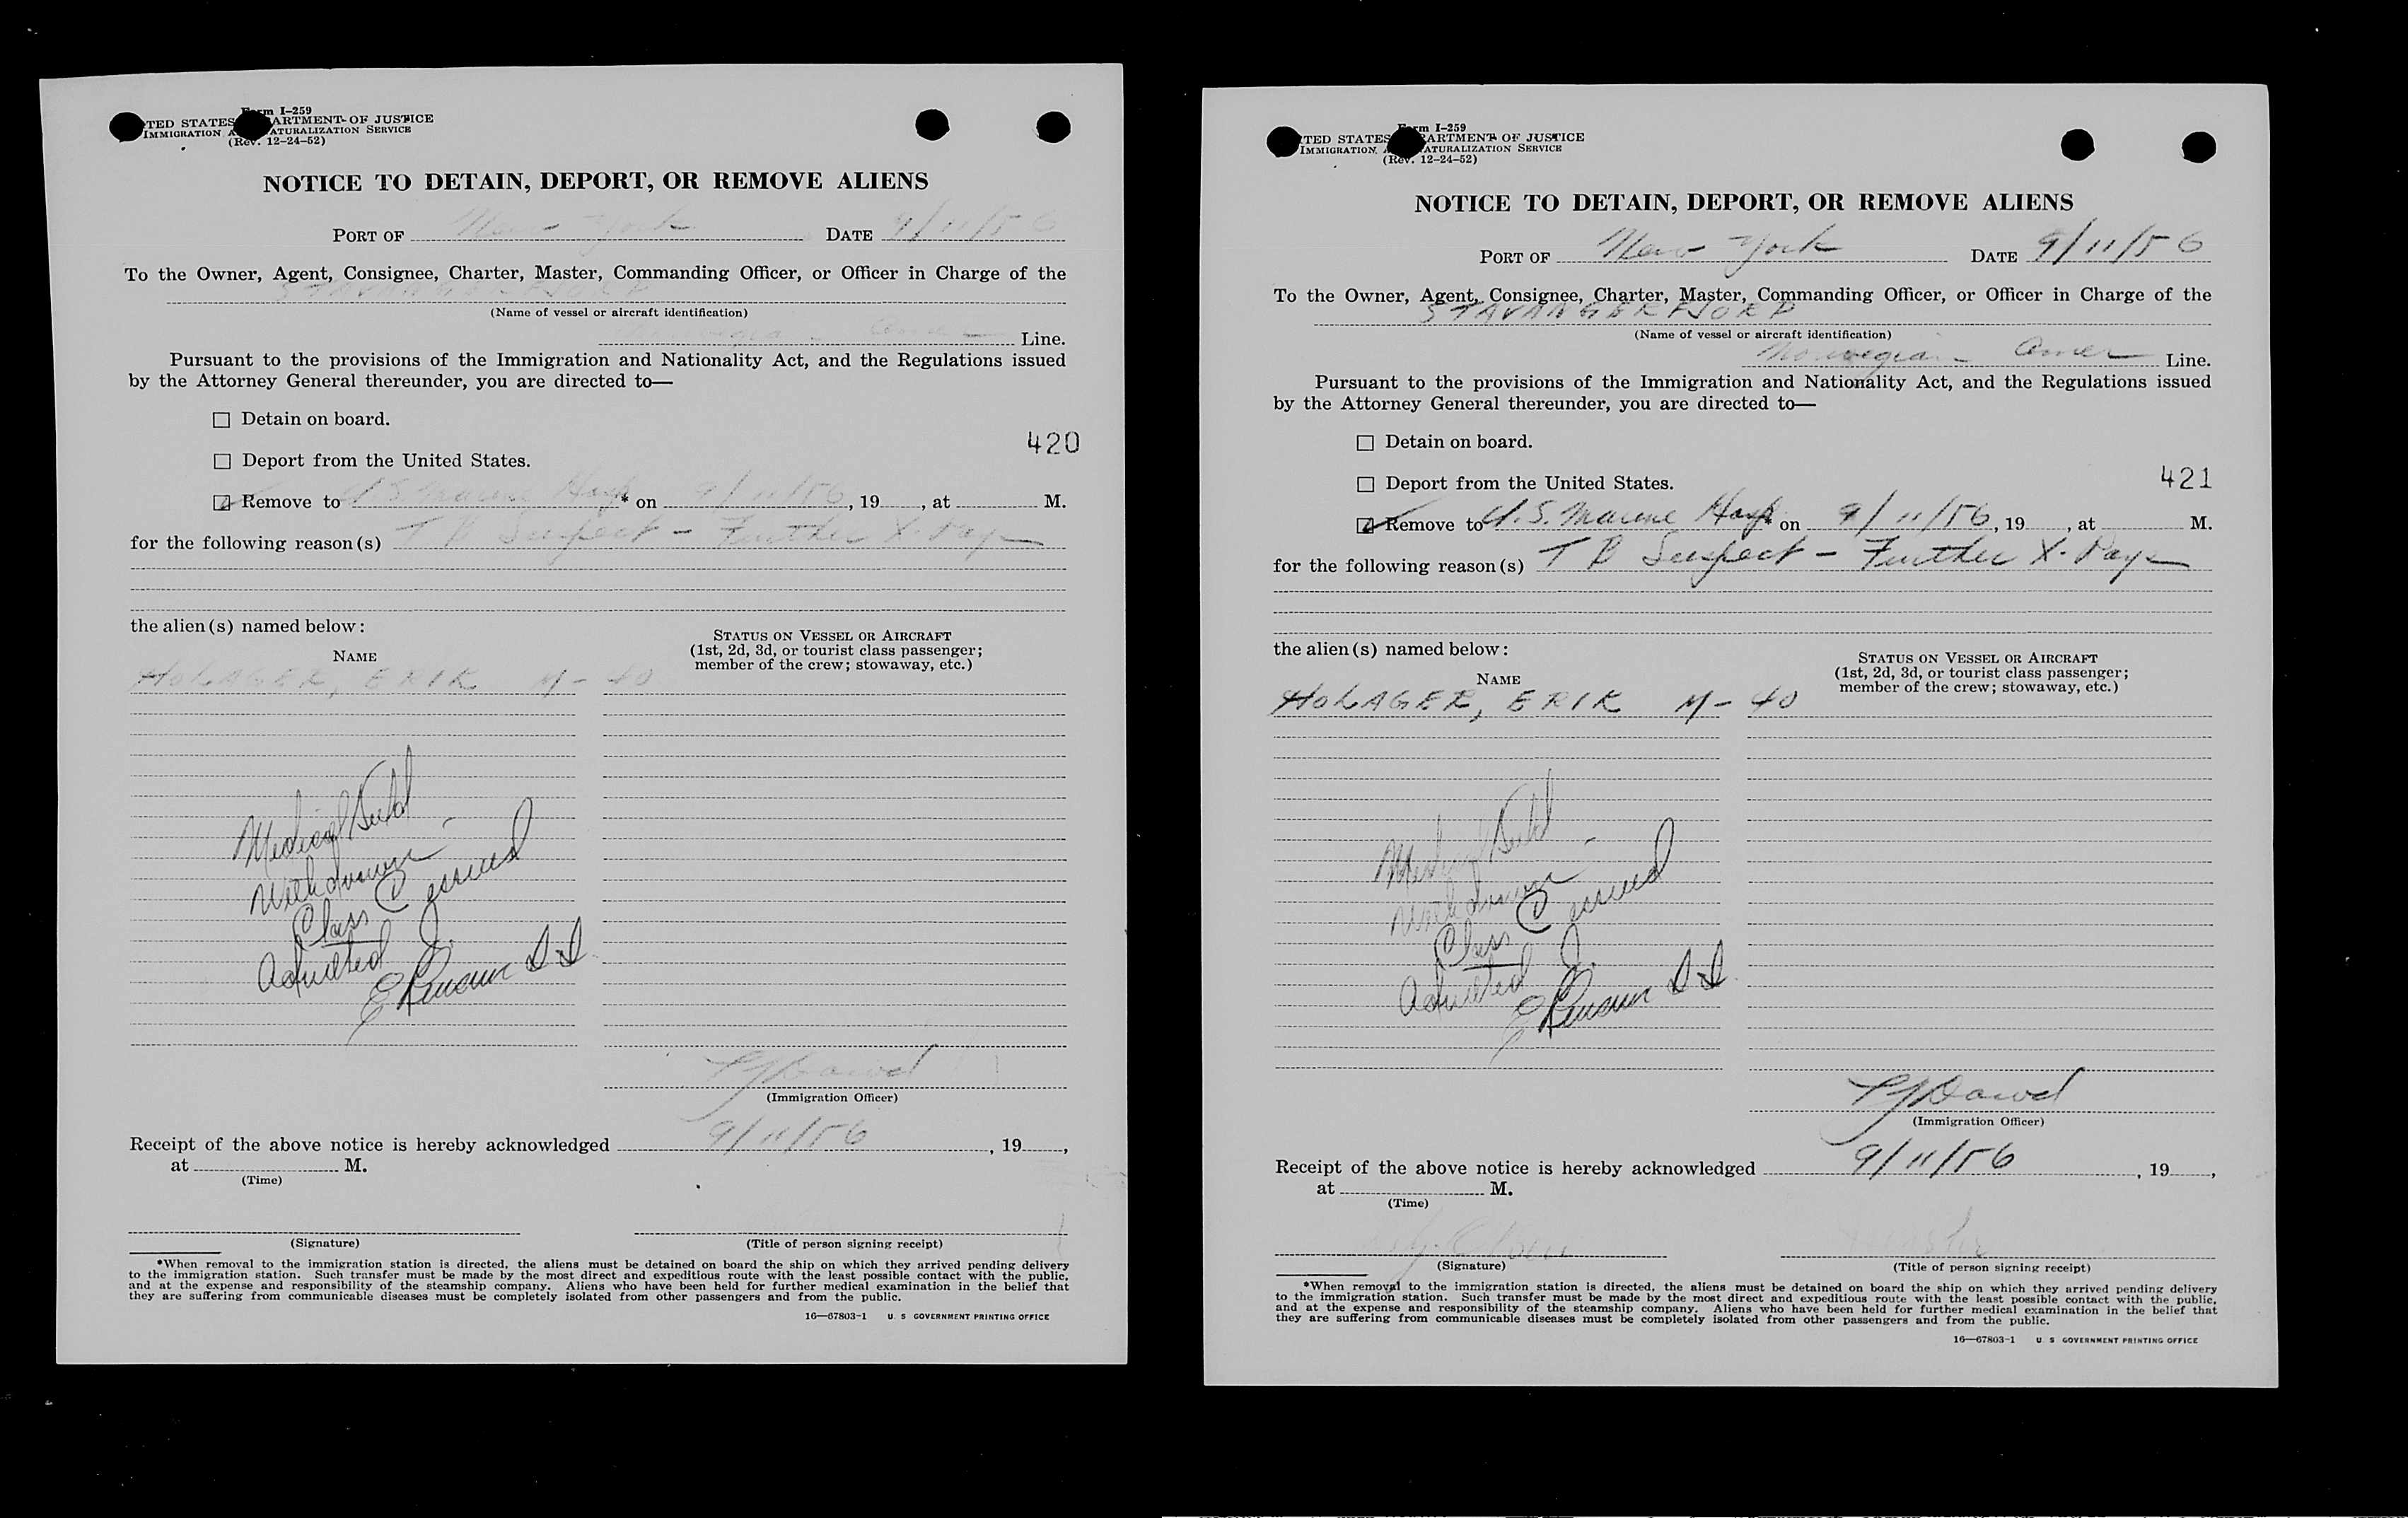 Form I-259
TED STATES ARTMENT OF JUSTICE
IMMIGRATION A ATURALIZATION SERVICE
(Rev. 12-24-52)
NOTICE TO DETAIN, DEPORT, OR REMOVE ALIENS
PORT OF New York DATE 9/11/56
To the Owner, Agent, Consignee, Charter, Master, Commanding Officer, or Officer in Charge of the
STAVANGERFJORD
(Name of vessel or aircraft identification)
Norwegian - Amer Line.
Pursuant to the provisions of the Immigration and Nationality Act, and the Regulations issued
by the Attorney General thereunder, you are directed to—
☐ Detain on board.
420
☐ Deport from the United States.
☑ Remove to U.S. Marine Hosp * on 9/11/56, 19 , at M.
for the following reason(s) T B Suspect - Further X-Rays
the alien(s) named below:
NAME
STATUS ON VESSEL OR AIRCRAFT
(1st, 2d, 3d, or tourist class passenger;
member of the crew; stowaway, etc.)
HOLAGER, ERIK M - 40
Medical
Withdrawn -
Class C issued
Admitted
(Immigration Officer)
Receipt of the above notice is hereby acknowledged 9/11/56, 19 ,
at M.
(Time)
(Signature) (Title of person signing receipt)
*When removal to the immigration station is directed, the aliens must be detained on board the ship on which they arrived pending delivery
to the immigration station. Such transfer must be made by the most direct and expeditious route with the least possible contact with the public,
and at the expense and responsibility of the steamship company. Aliens who have been held for further medical examination in the belief that
they are suffering from communicable diseases must be completely isolated from other passengers and from the public.
16—67803-1 U. S GOVERNMENT PRINTING OFFICE
Form I-259
TED STATES ARTMENT OF JUSTICE
IMMIGRATION A ATURALIZATION SERVICE
(Rev. 12-24-52)
NOTICE TO DETAIN, DEPORT, OR REMOVE ALIENS
PORT OF New York DATE 9/11/56
To the Owner, Agent, Consignee, Charter, Master, Commanding Officer, or Officer in Charge of the
STAVANGERFJORD
(Name of vessel or aircraft identification)
Norwegian - Amer Line.
Pursuant to the provisions of the Immigration and Nationality Act, and the Regulations issued
by the Attorney General thereunder, you are directed to—
☐ Detain on board.
☐ Deport from the United States.
421
☑ Remove to U.S. Marine Hosp * on 9/11/56, 19 , at M.
for the following reason(s) T B Suspect - Further X-Rays
the alien(s) named below:
NAME
STATUS ON VESSEL OR AIRCRAFT
(1st, 2d, 3d, or tourist class passenger;
member of the crew; stowaway, etc.)
HOLAGER, ERIK M - 40
Medical
Withdrawn -
Class C issued
Admitted
Dowd
(Immigration Officer)
Receipt of the above notice is hereby acknowledged 9/11/56, 19 ,
at M.
(Time)
(Signature) (Title of person signing receipt)
*When removal to the immigration station is directed, the aliens must be detained on board the ship on which they arrived pending delivery
to the immigration station. Such transfer must be made by the most direct and expeditious route with the least possible contact with the public,
and at the expense and responsibility of the steamship company. Aliens who have been held for further medical examination in the belief that
they are suffering from communicable diseases must be completely isolated from other passengers and from the public.
16—67803-1 U S GOVERNMENT PRINTING OFFICE